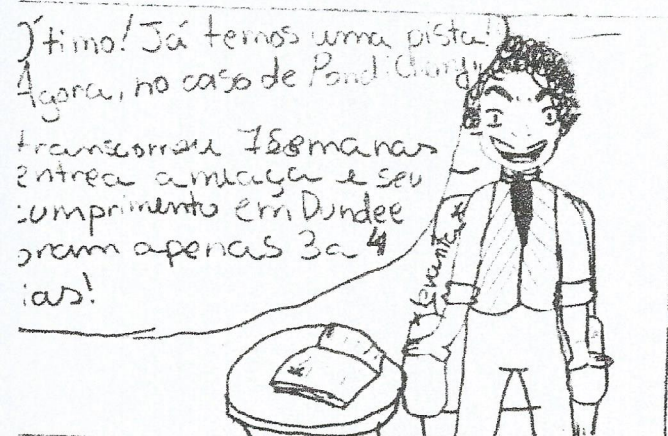 Ótimo! Já temos uma pista!
Agora, no caso de Pondicherry
transcorreu 7 semanas
entrea ameaça e seu
cumprimento em Dundee
oram apenas 3 a 4
ias!
*levanta*